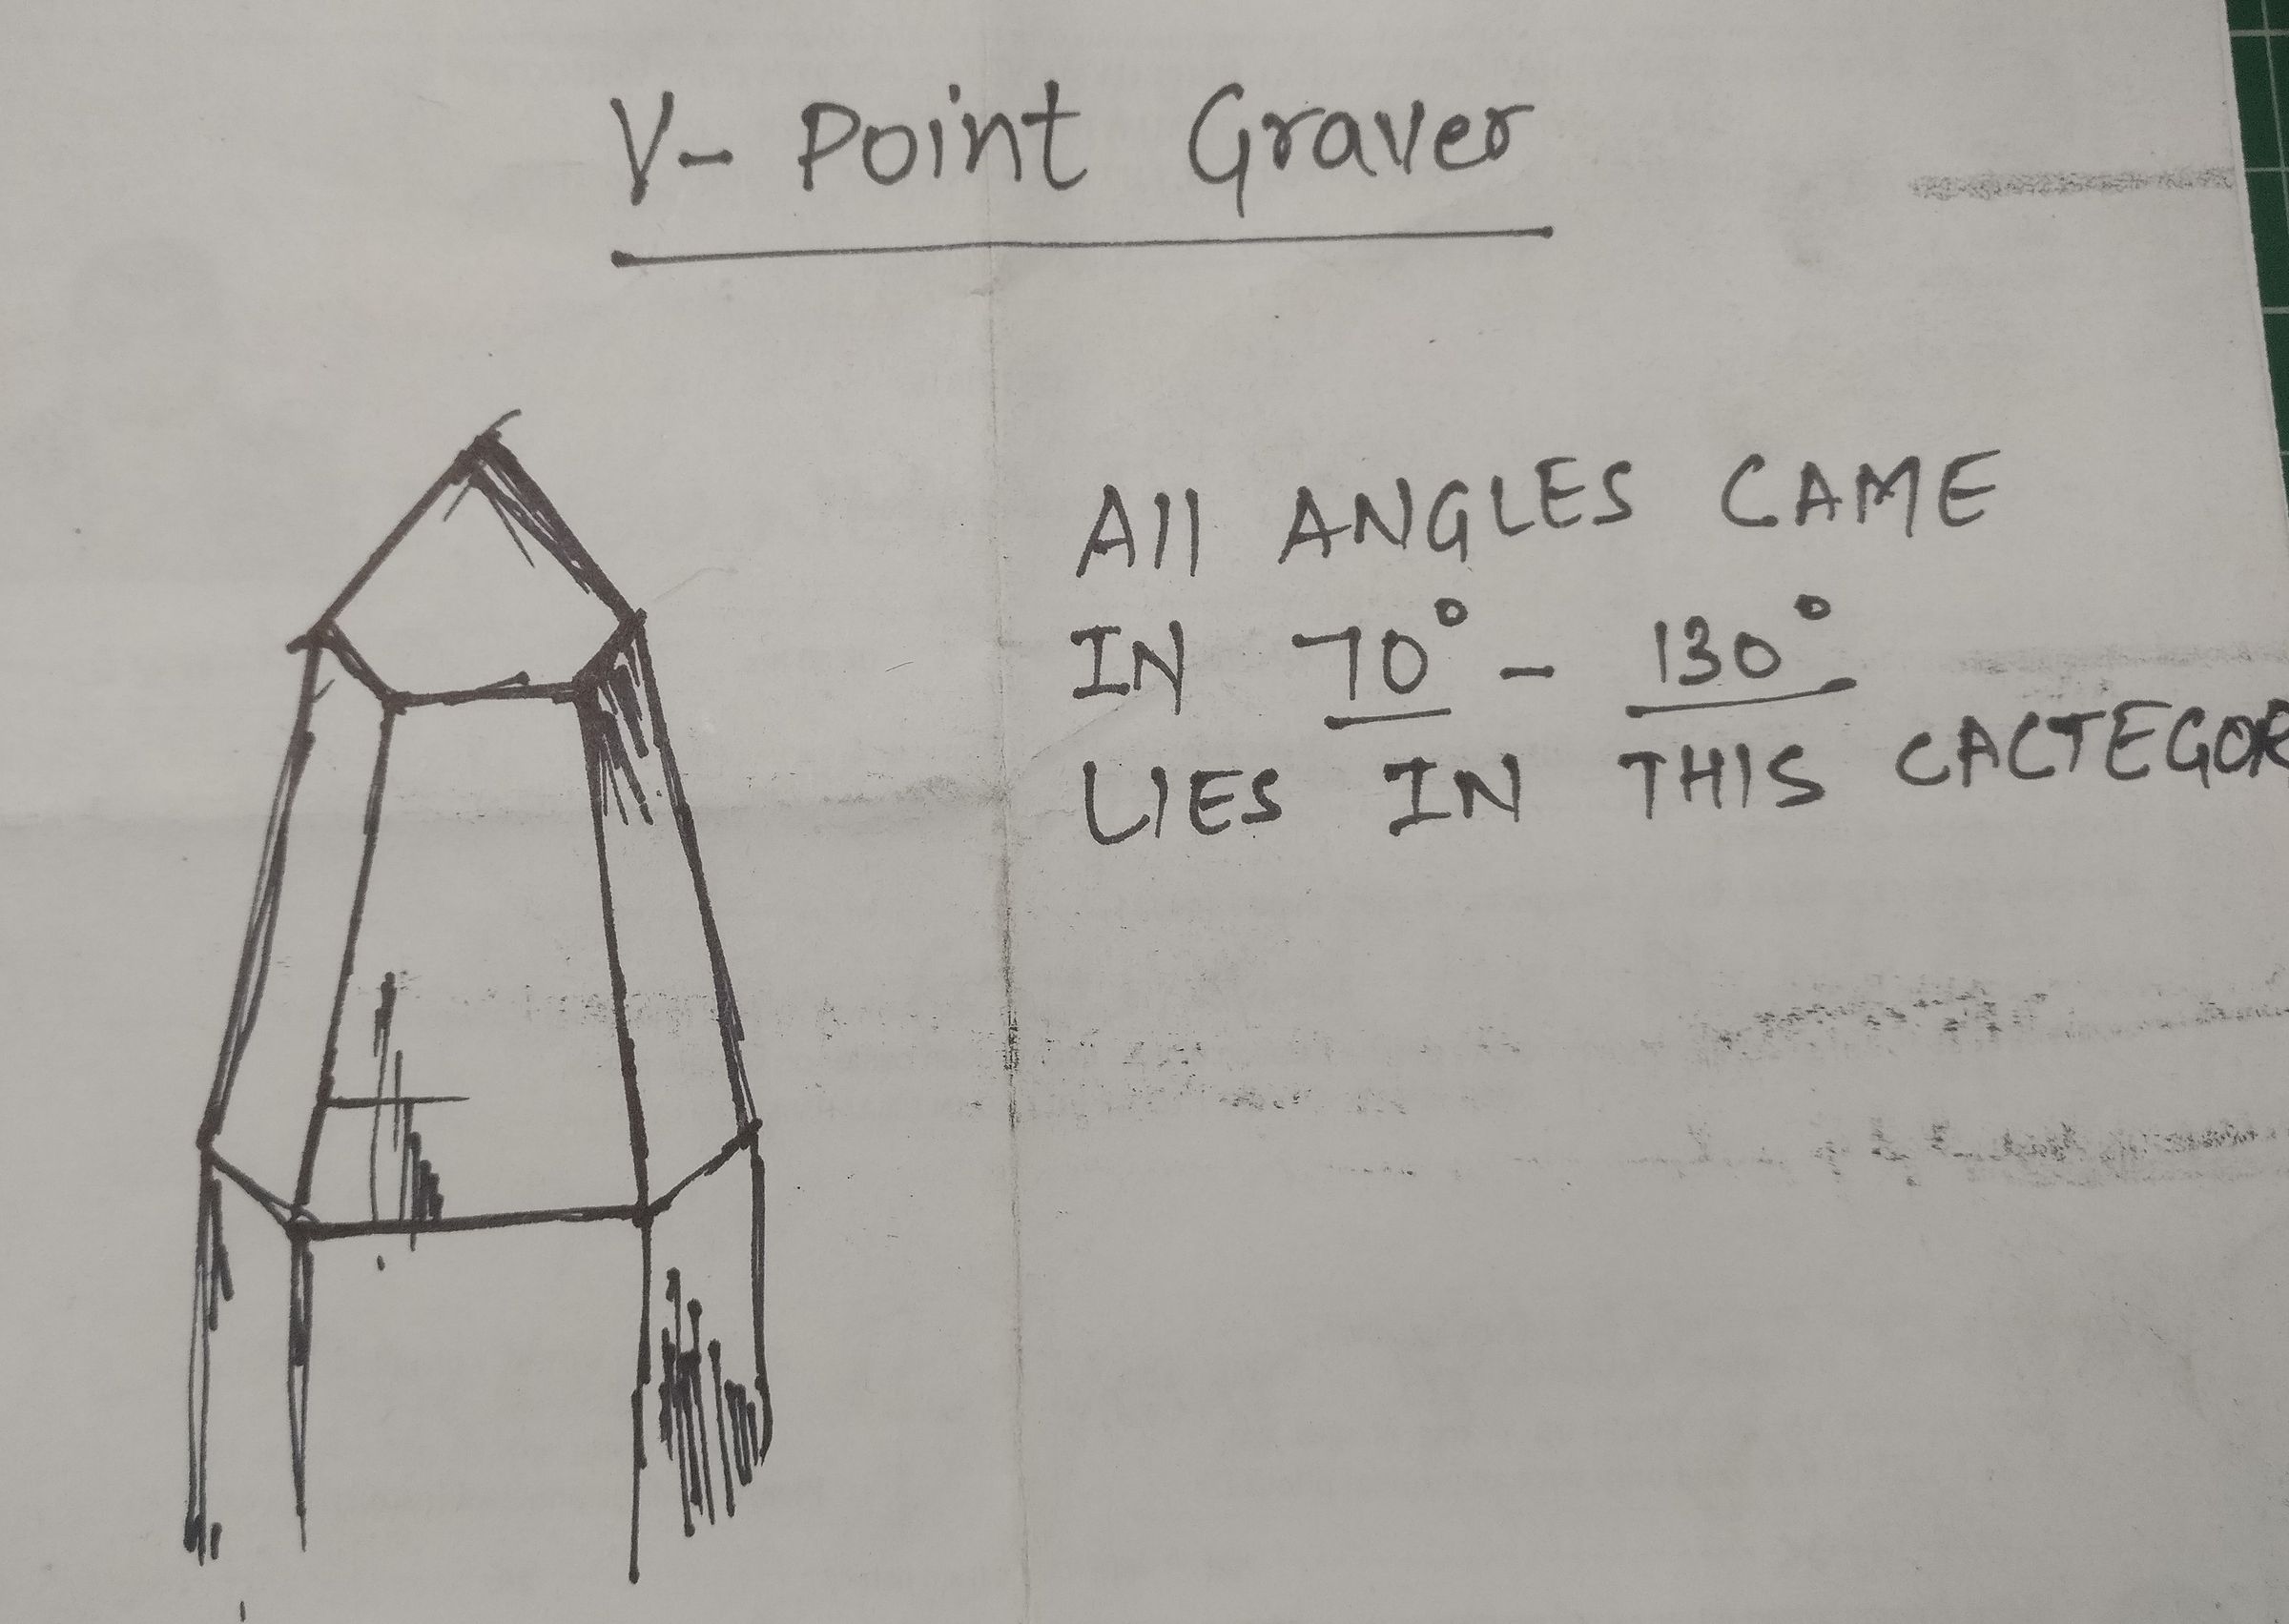 V- Point Graver
All ANGLES CAME
IN 70° - 130°
LIES IN THIS CACTEGOR